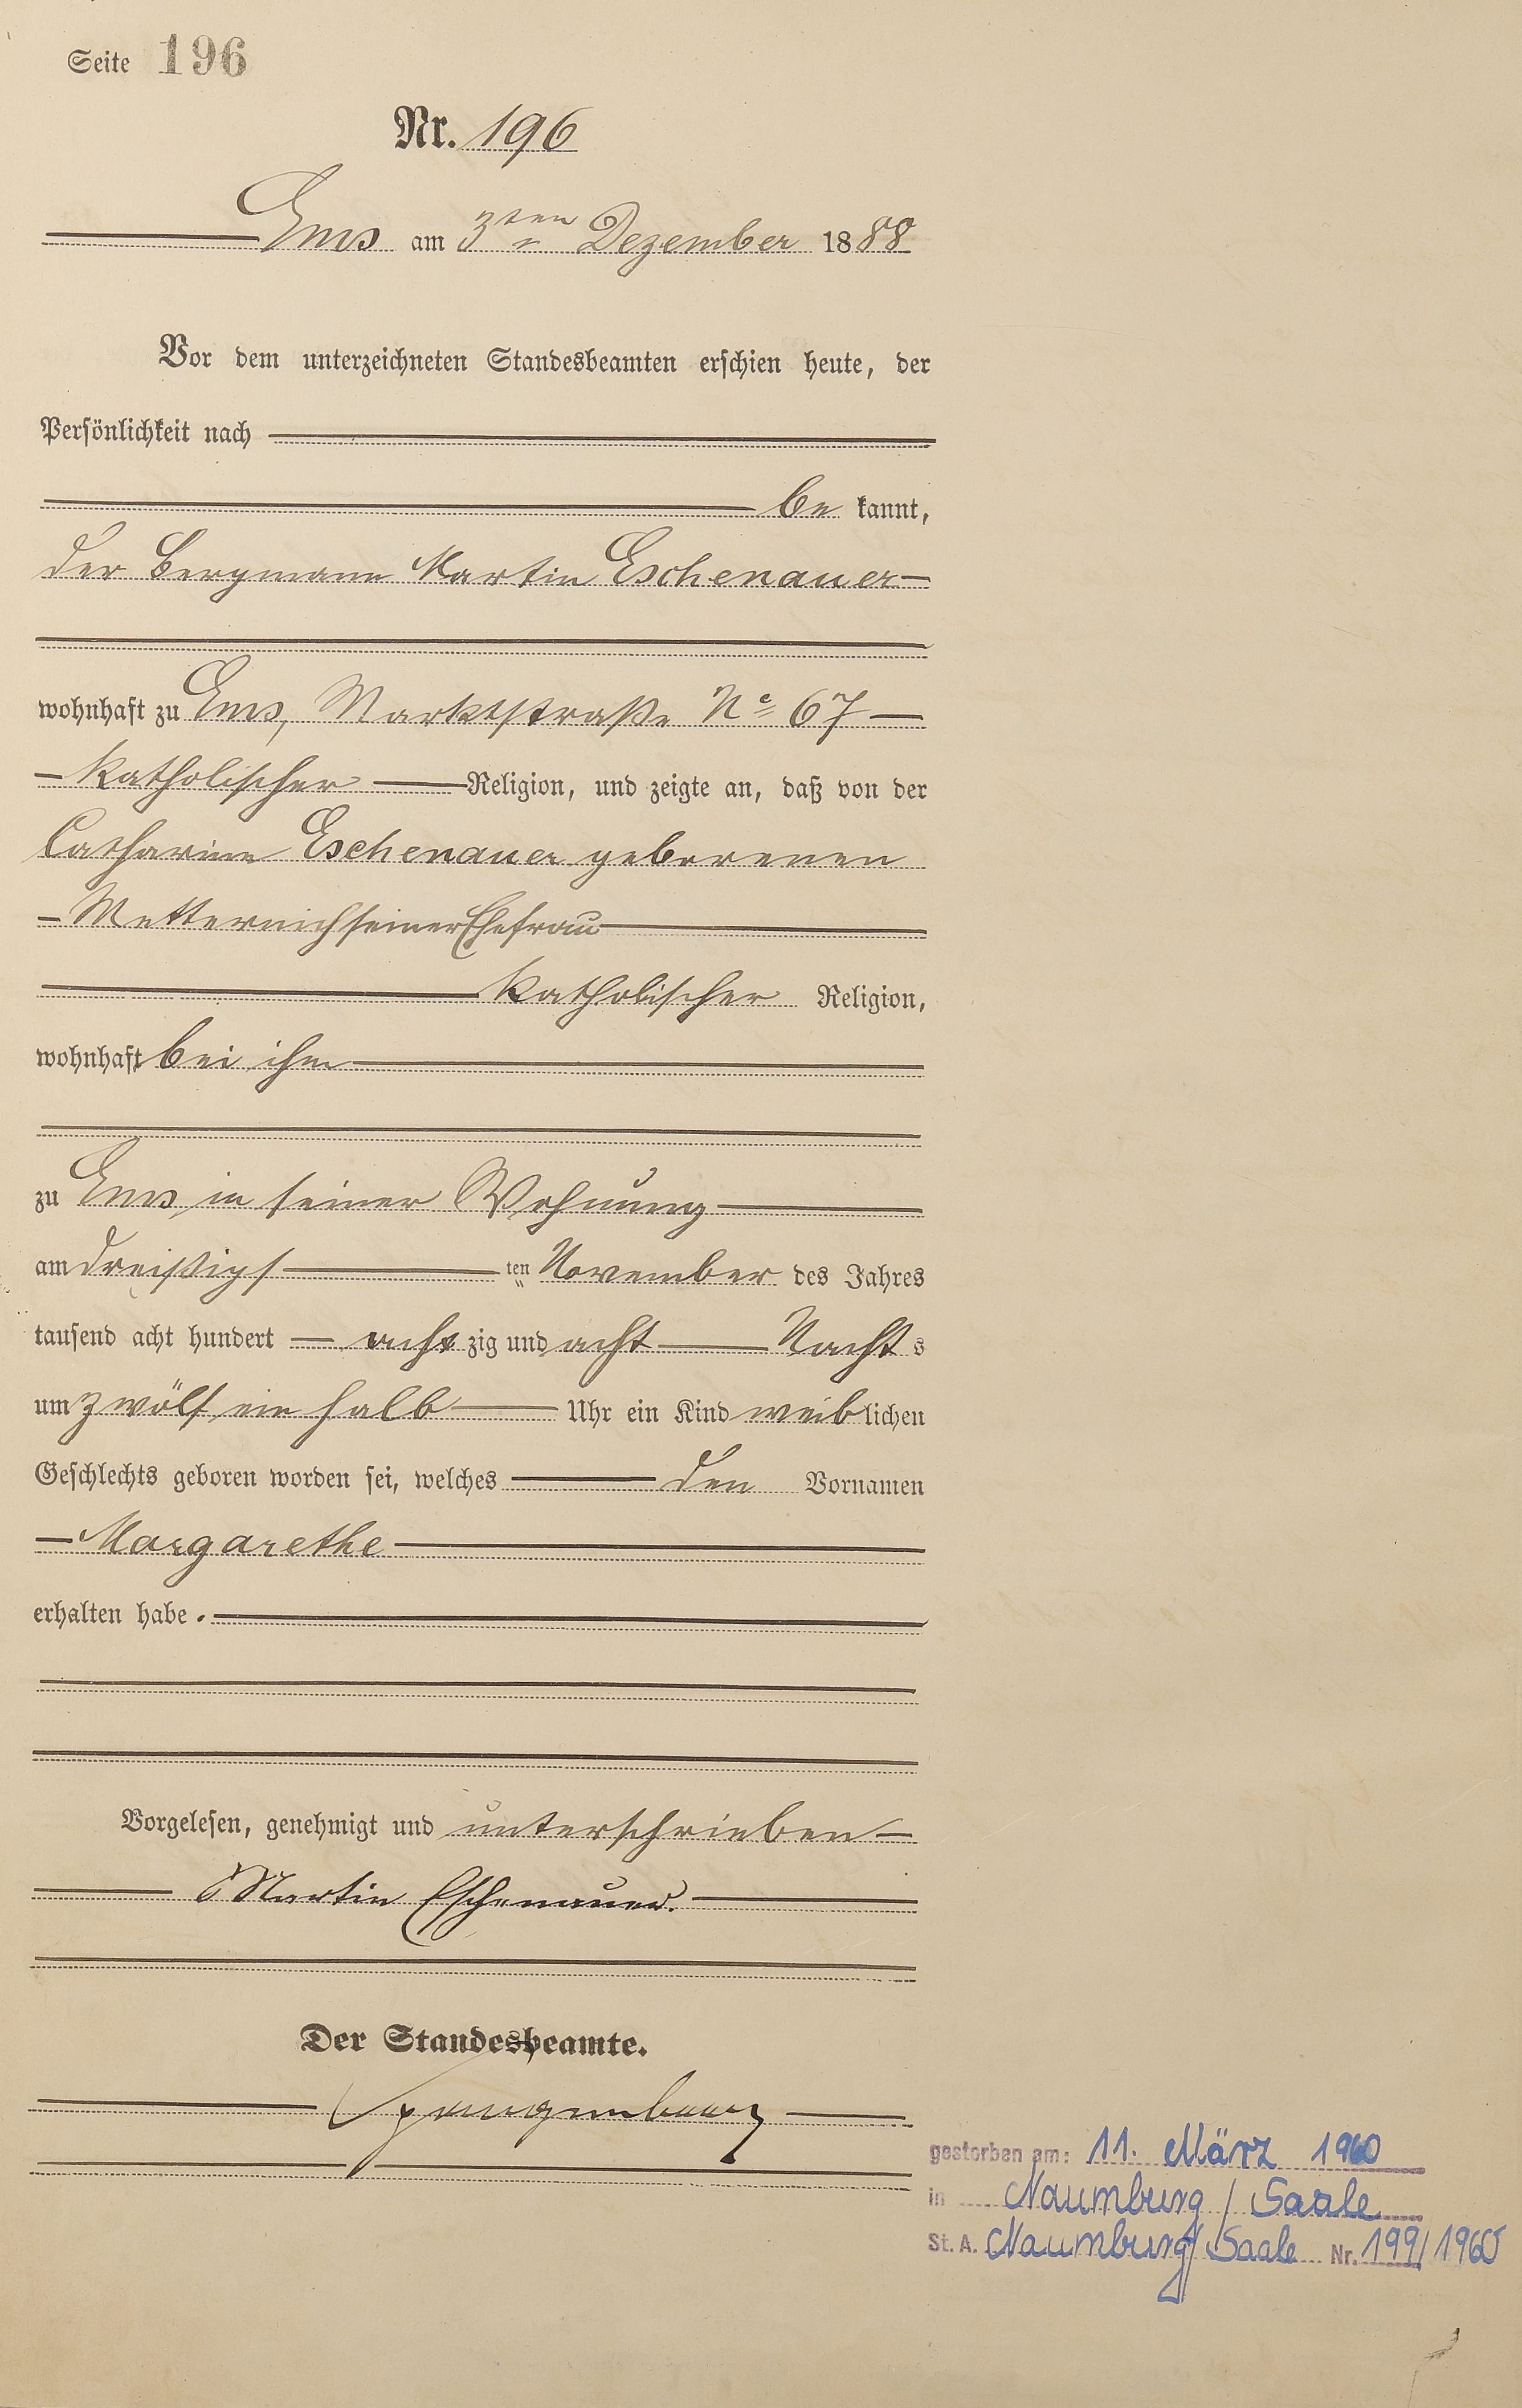 Seite 196
Nr. 196
Ems am 3ten Dezember 1888
Vor dem unterzeichneten Standesbeamten erschien heute, der
Persönlichkeit nach
be kannt,
der Bergmann Martin Eschenauer
wohnhaft zu Ems, Marktstraße No 67
katholischer Religion, und zeigte an, daß von der
Catharine Eschenauer geborenen
Metternich seiner Ehefrau
katholischer Religion,
wohnhaft bei ihm
zu Ems in seiner Wohnung
am dreißigs ten November des Jahres
tausend acht hundert acht zig und acht Nacht s
um zwölf ein halb Uhr ein Kind weib lichen
Geschlechts geboren worden sei, welches den Vornamen
Margarethe
erhalten habe.
Vorgelesen, genehmigt und unterschrieben
Martin Eschenauer.
Der Standesbeamte.
gestorben am: 11. März 1960
in Naumburg / Saale
St. A. Naumburg/Saale Nr. 199/1960